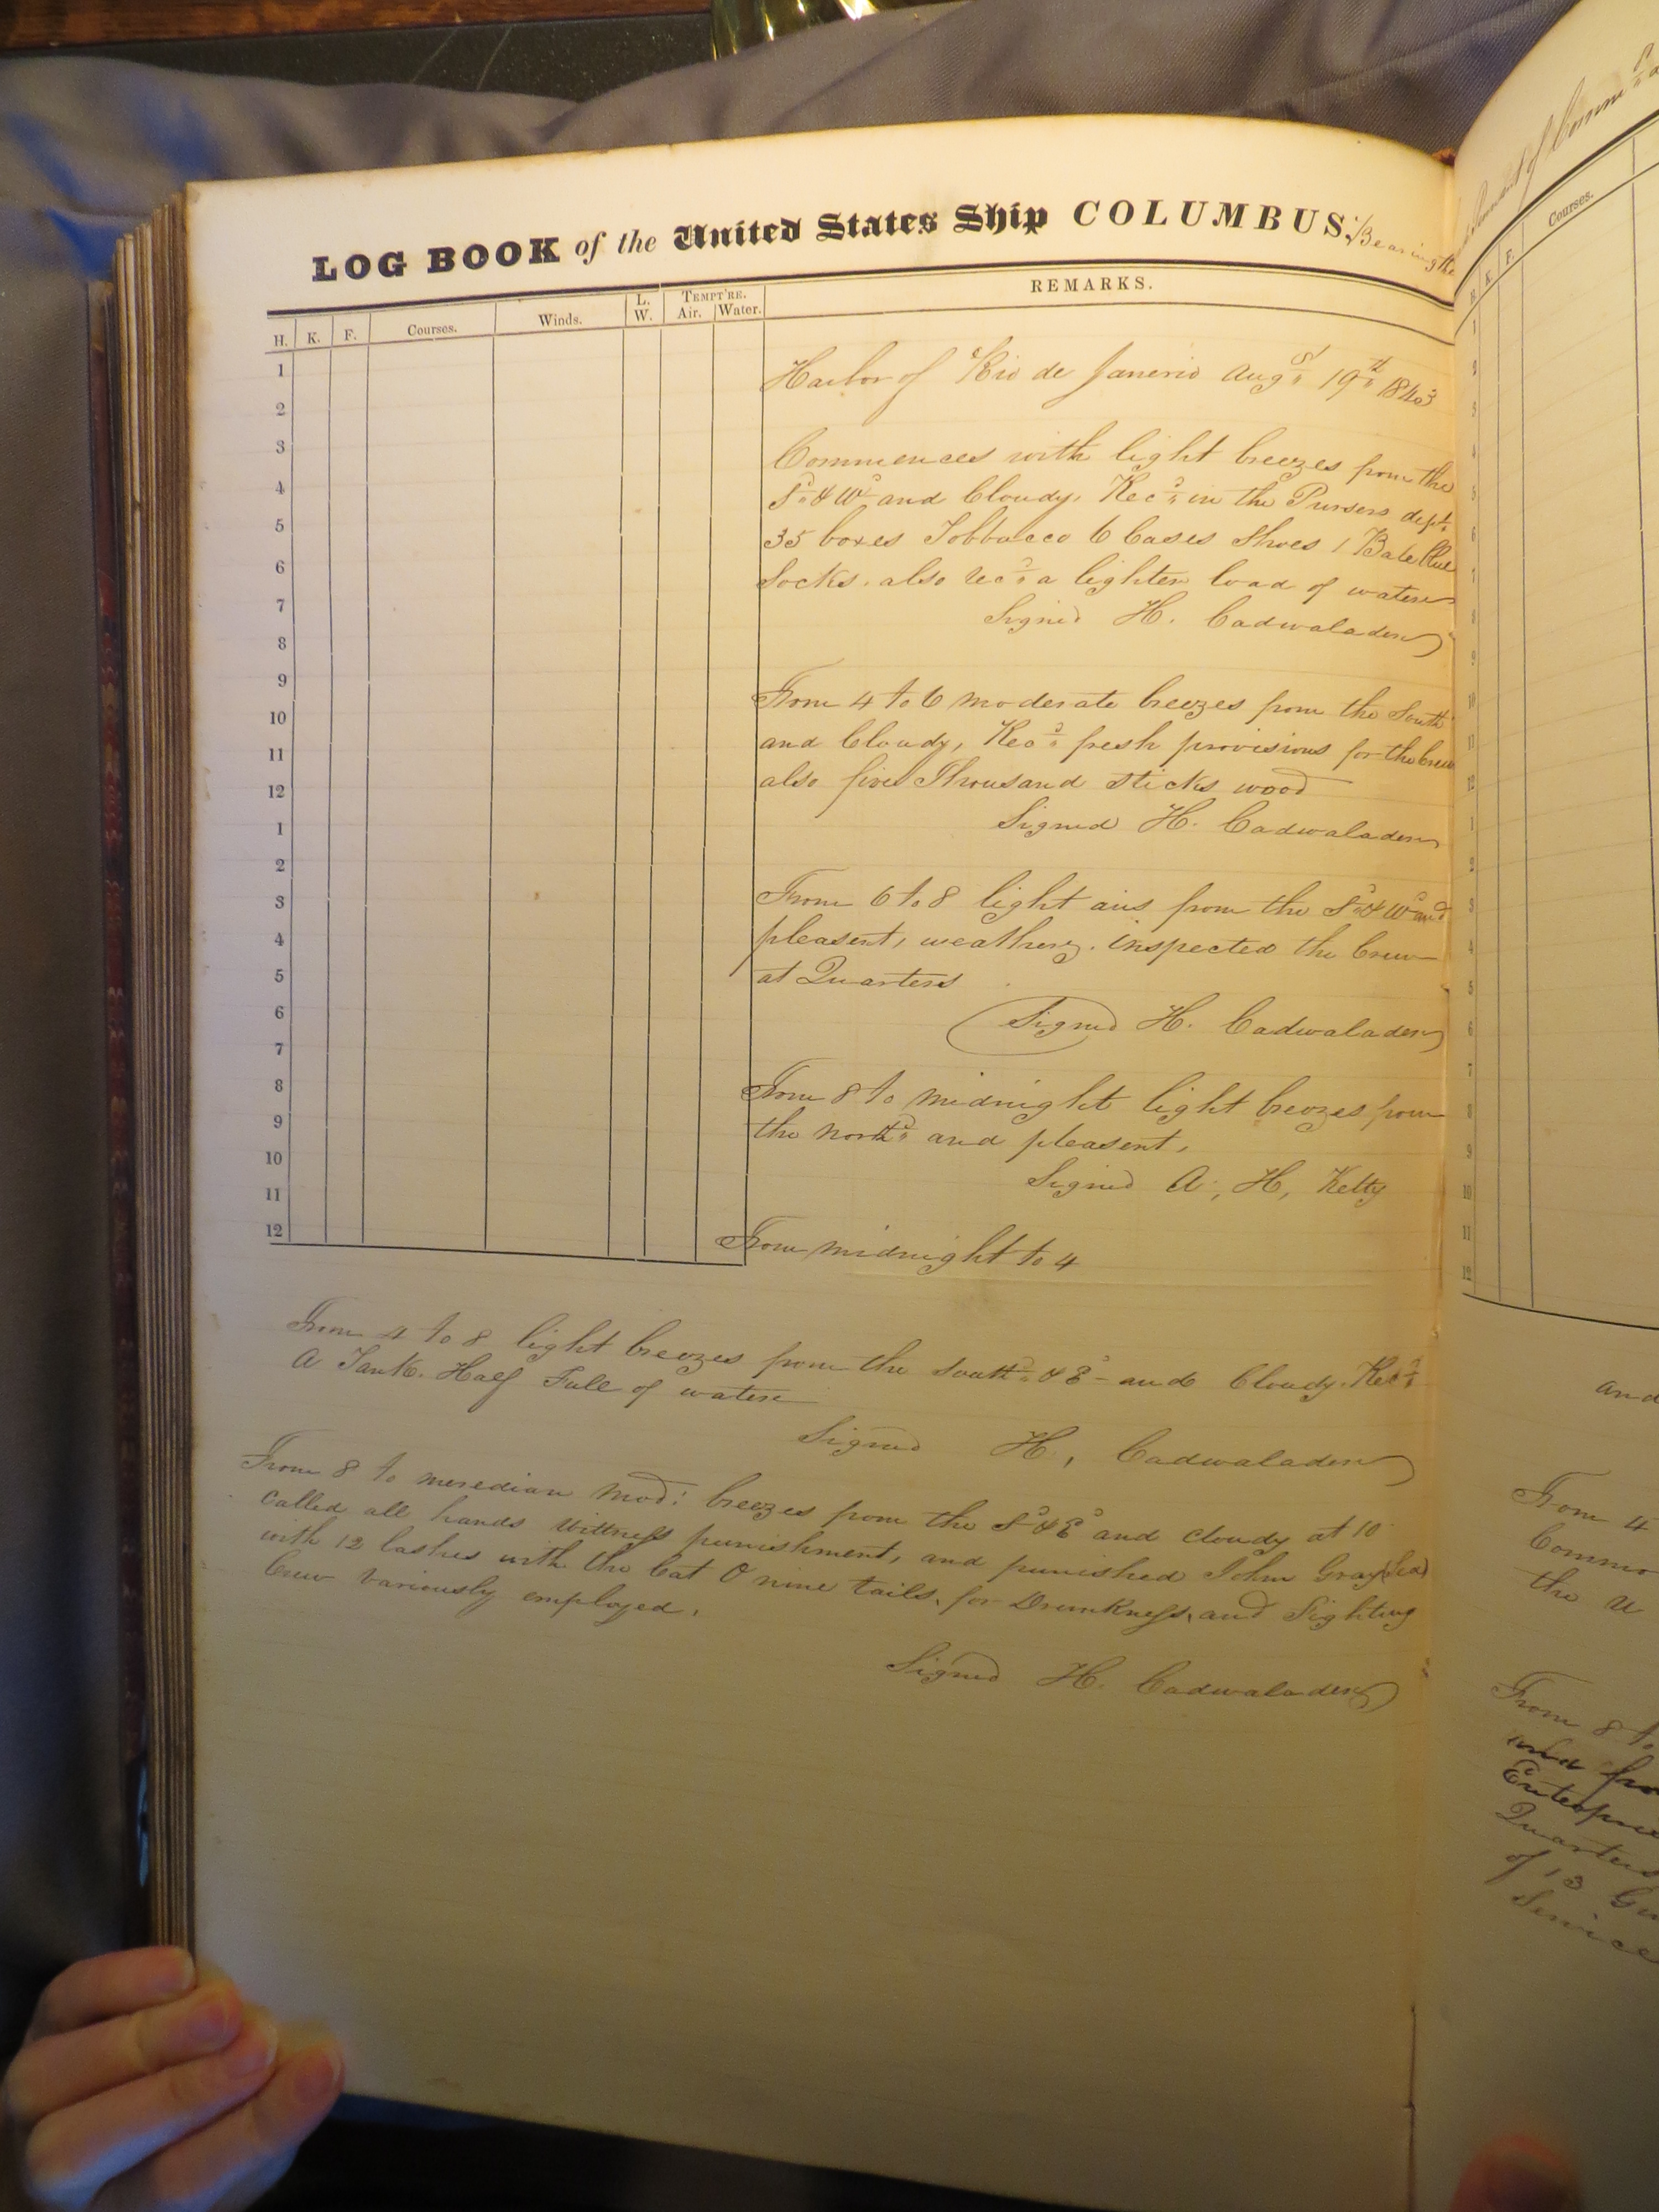 LOG BOOK of the United States Ship COLUMBUS. Bearing the
H. K. F. Courses. Winds. L. W. TEMPT'RE. Air. Water. REMARKS.
1
2
3
4
5
6
7
8
9
10
11
12
1
2
3
4
5
6
7
8
9
10
11
12
Harbor of Rio de Janerio Augst 19th 1843
Commences with light breezes from the
Sd & Wd and Cloudy, Recd in the Pursers dept.
35 boxes Tobbacco 6 Cases Shoes 1 Bale Blue
Socks. also recd a lighter load of water
Signed H. Cadwalader
From 4 to 6 moderate breezes from the South
and Cloudy, Recd fresh provisions for the Crew
also five Thousand sticks wood
Signed H. Cadwalader
From 6 to 8 light airs from the Sd & Wd and
pleasent, weather. inspected the Crew
at Quarters
Signed H. Cadwalader
From 8 to midnight light breezes from
the northd and pleasent,
Signed A, H, Kelty
From midnight to 4
From 4 to 8 light breezes from the southd & Ed and Cloudy. Recd
A Tank. Half Full of water
Signed H, Cadwalader
From 8 to meredian mod: breezes from the Sd & Ed and cloudy at 10
Called all hands Wittness punishment, and punished John Gray (Sea)
with 12 lashes with the Cat O nine tails. for Drunkness, and Fighting
Crew variously employed.
Signed H. Cadwalader
Courses.
H. K. F.
1
2
3
4
5
6
7
8
9
10
11
12
1
2
3
4
5
6
7
8
9
10
11
12
and
From 4
Commo
the U
From 8 to
and
Quarters
of 13
Service